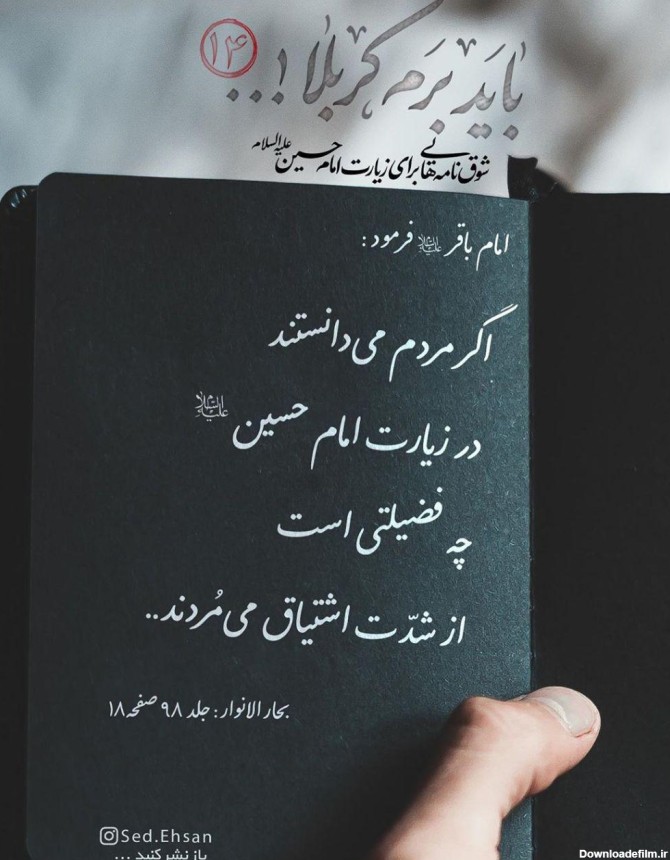 باید برم کربلا!...
۱۴
شوق‌نامه‌هایی برای زیارت امام حسین علیه‌السلام
امام باقر علیه‌السلام فرمود:
اگر مردم می‌دانستند
در زیارت امام حسین علیه‌السلام
چه فضیلتی است
از شدّت اشتیاق می‌مُردند..
بحارالانوار: جلد ۹۸ صفحه ۱۸
Sed.Ehsan
بازنشر کنید ...
Downloadefilm.ir